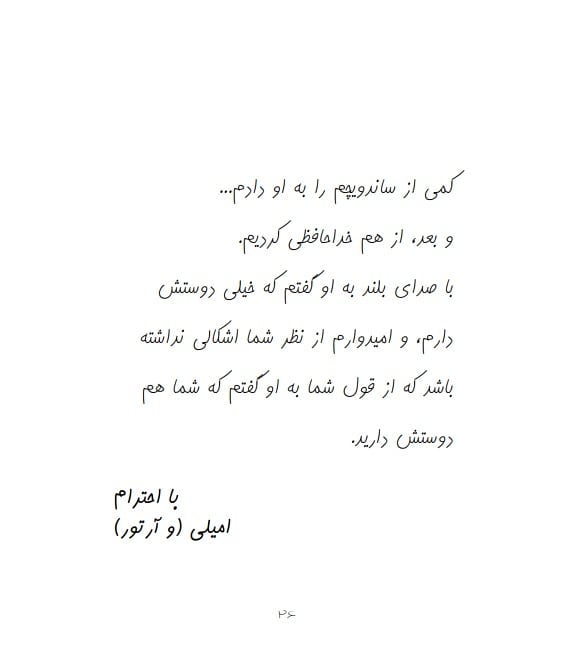 کمی از ساندویچم را به او دادم...
و بعد، از هم خداحافظی کردیم.
با صدای بلند به او گفتم که خیلی دوستش
دارم، و امیدوارم از نظر شما اشکالی نداشته
باشد که از قول شما به او گفتم که شما هم
دوستش دارید.
با احترام
امیلی (و آرتور)
۲۶